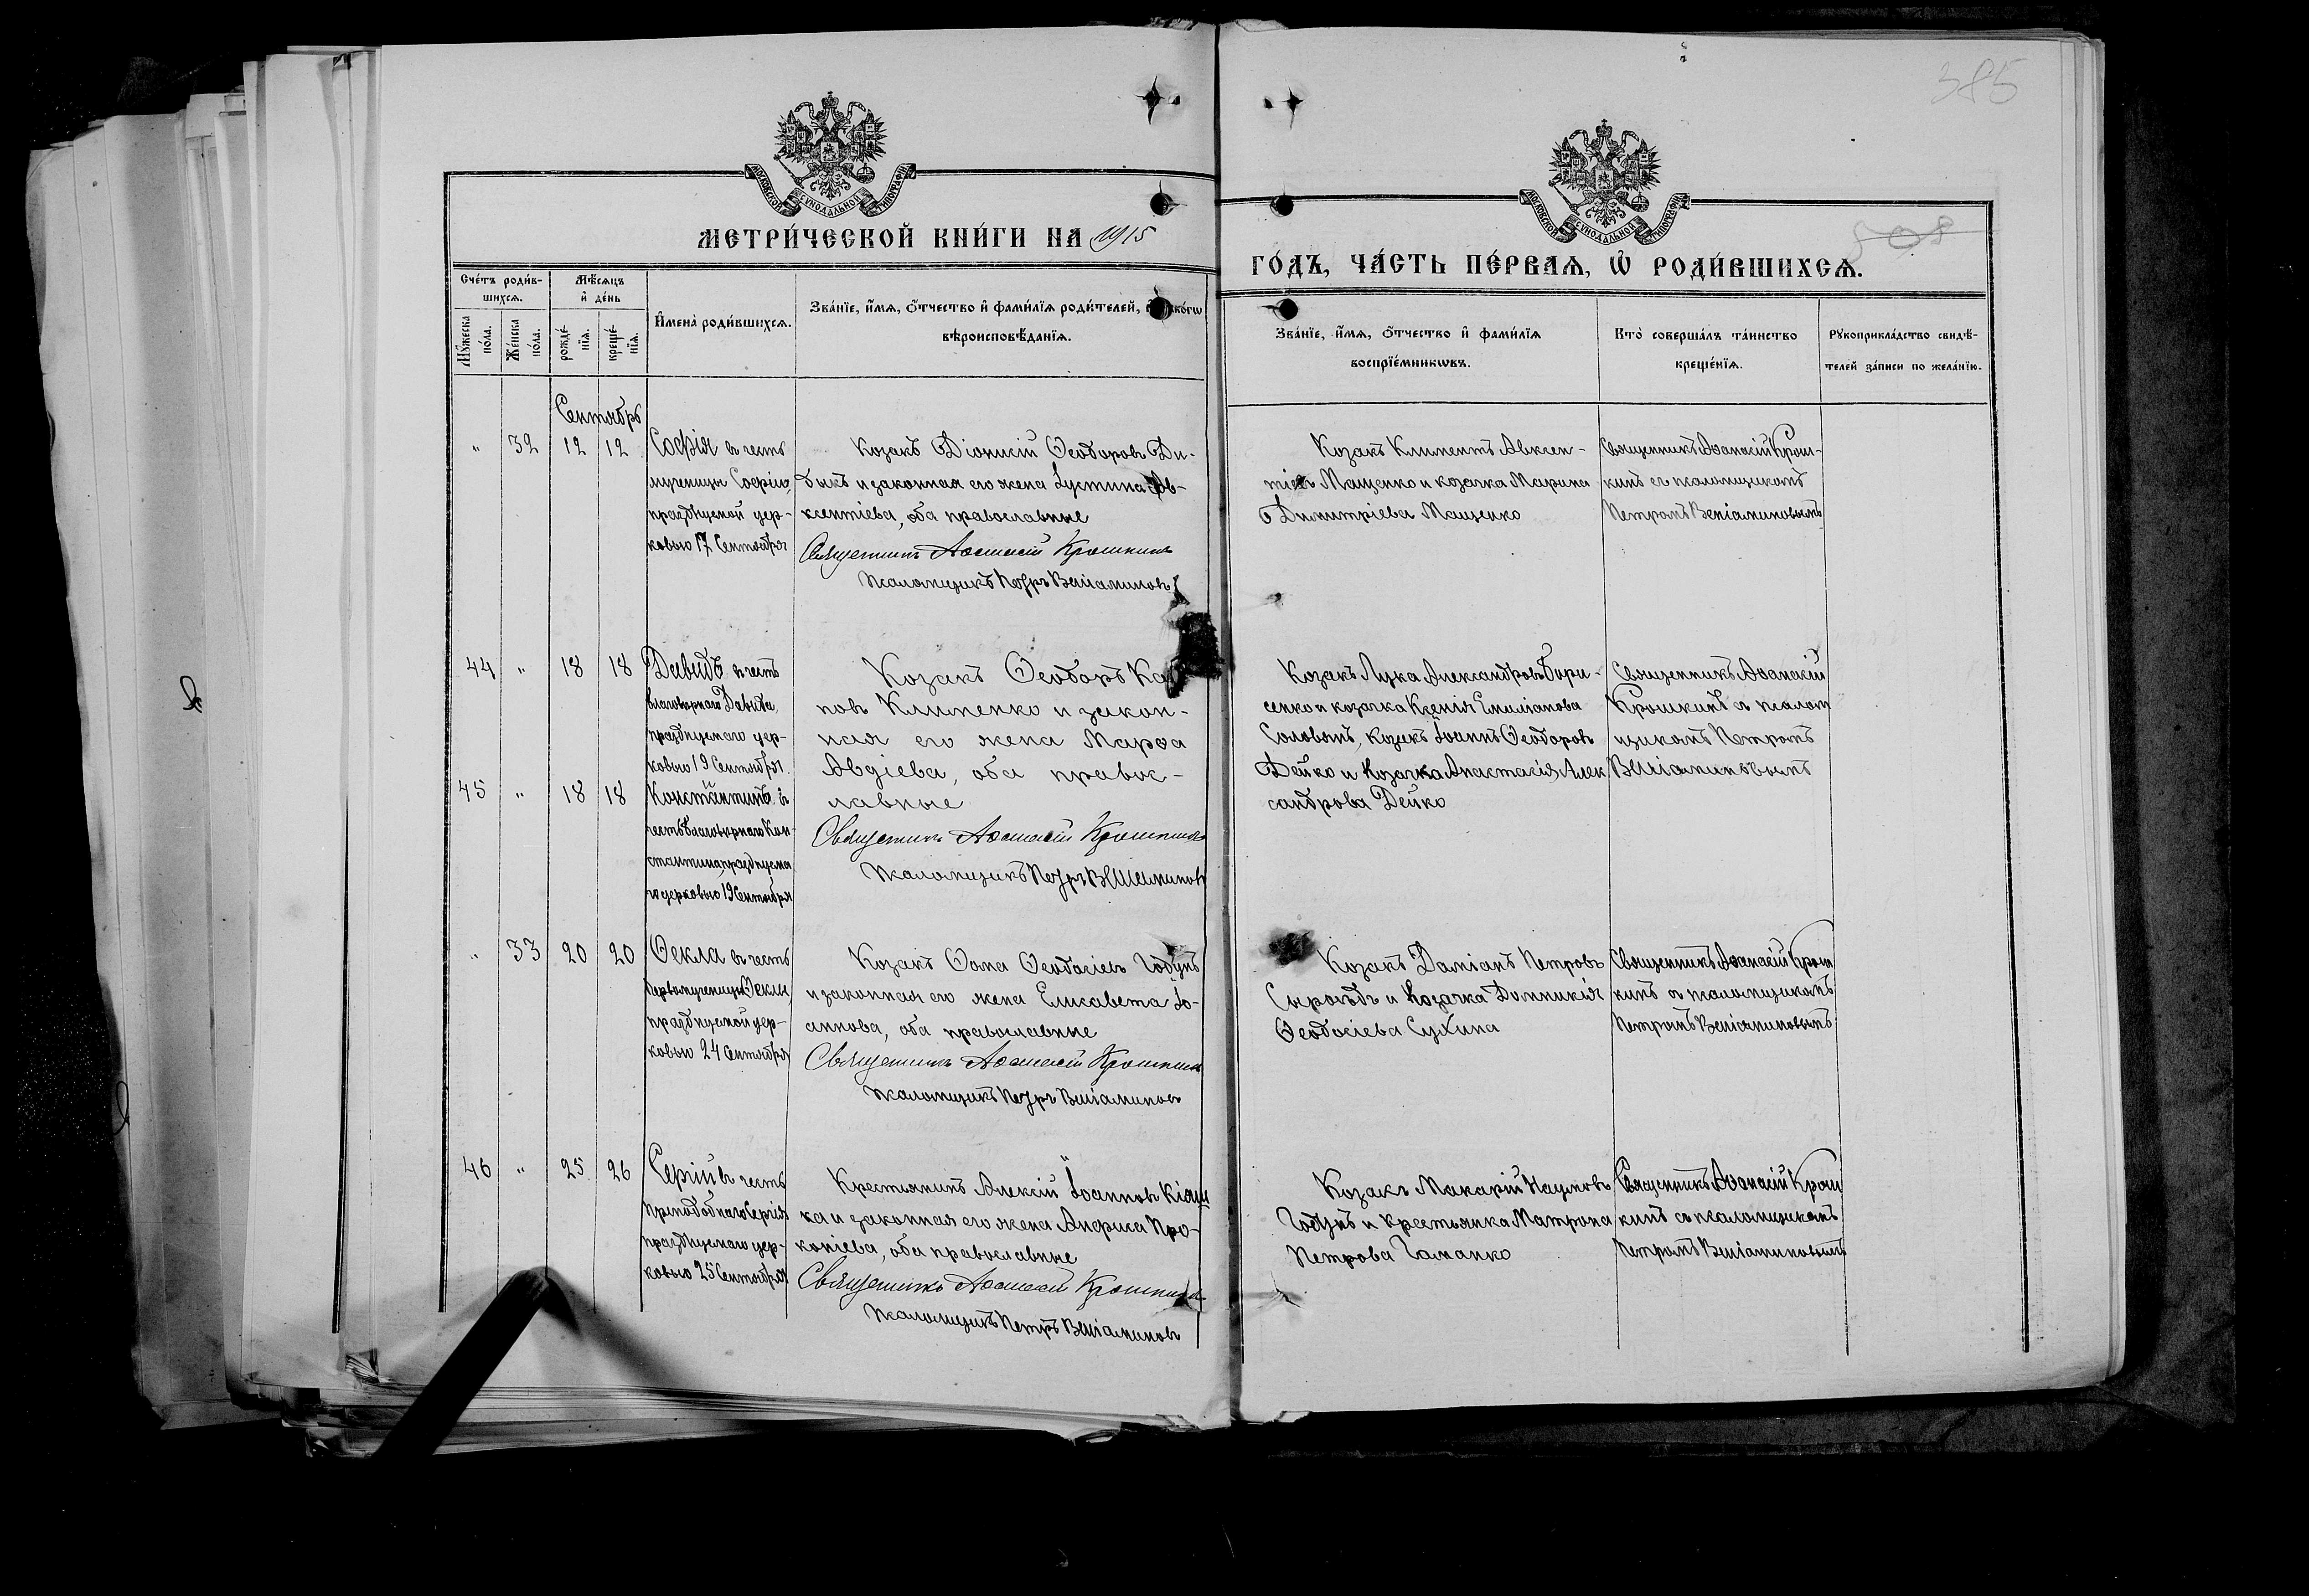 385
508
МОСКОВСКОЙ СѴНОДАЛЬНОЙ ТИПОГРАФІИ
МОСКОВСКОЙ СѴНОДАЛЬНОЙ ТИПОГРАФІИ
МЕТРИ́ЧЕСКОЙ КНИ́ГИ НА 1915
ГО́ДЪ, ЧА́СТЬ ПЕ́РВАѦ, Ѡ҆ РОДИ́ВШИХСѦ.
Сче́тъ роди́в-
шихсѧ.
Мѣ́сѧцъ
и҆ де́нь
Мꙋ́жеска
по́ла.
Же́нска
по́ла.
рожде́-
нїѧ.
креще́-
нїѧ.
И҆мена̀ роди́вшихсѧ.
Зва́нїе, и҆́мѧ, ѻ҆́тчество и҆ фами́лїѧ роди́телей,
вѣроисповѣ́данїѧ.
Зва́нїе, и҆́мѧ, ѻ҆́тчество и҆ фами́лїѧ
воспрїе́мникѡвъ.
Кто̀ соверша́лъ та́инство
креще́нїѧ.
Рꙋкоприкла́дство свидѣ́-
телей за́писи по жела́нїю.
Сентябрь
" 32 12 12
Софія въ честь
мученицы Софіи,
празднуемой цер-
ковью 17 Сентября
Козакъ Діонисій Ѳеодоровъ Ди-
быкъ и законная его жена Іустина Ав-
ксентіева, оба православные
Священникъ Аѳанасій Крошкинъ
Псаломщикъ Петръ Веніаминовъ
Козакъ Климентъ Авксен-
тіевъ Мащенко и козачка Марина
Димитріева Мащенко
Священникъ Аѳанасій Крош-
кинъ съ псаломщикомъ
Петромъ Веніаминовымъ
44 " 18 18
Давидъ въ честь
благовѣрнаго Давида,
празднуемаго цер-
ковью 19 Сентября.
45 " 18 18
Константинъ въ
честь благовѣрнаго Кон-
стантина празднуема
го церковью 19 Сентября
Козакъ Ѳеодоръ
повъ Клименко и закон-
ная его жена Марѳа
Авдіева, оба правос-
лавные
Священникъ Аѳанасій Крошкинъ
Псаломщикъ Петръ Веніаминовъ
Козакъ Лука Александровъ Бори-
сенко и козачка Ксенія Емиліанова
Соловыхъ, Козакъ Іоаннъ Ѳеодоровъ
Дейко и Козачка Анастасія Алек
сандрова Дейко
Священникъ Аѳанасій
Крошкинъ съ псалом
щикомъ Петромъ
Веніаминовымъ
" 33 20 20
Ѳекла въ честь
Первомученицы Ѳеклы
празднуемой цер-
ковью 24 Сентября
Козакъ Ѳома Ѳеодосіевъ Годунъ
и законная его жена Елисавета Іо-
аннова, оба православные
Священникъ Аѳанасій Крошкинъ
Псаломщикъ Петръ Веніаминовъ
Козакъ Даміанъ Петровъ
Сыроѣдъ и Козачка Домникія
Ѳеодосіева Сухина
Священникъ Аѳанасій Крош
кинъ съ псаломщикомъ
Петромъ Веніаминовымъ
46 " 25 26
Сергій въ честь
Преподобнаго Сергія
празднуемаго цер-
ковью 25 Сентября
Крестьянинъ Алексій Іоанновъ Кіящ
ка и законная его жена Анфиса Про-
копіева, оба православные
Священникъ Аѳанасій Крошкинъ
Псаломщикъ Петръ Веніаминовъ
Козакъ Макарій Наумовъ
Годунъ и крестьянка Матрона
Петрова Гаманко
Священникъ Аѳанасій Крош
кинъ съ псаломщикомъ
Петромъ Веніаминовымъ